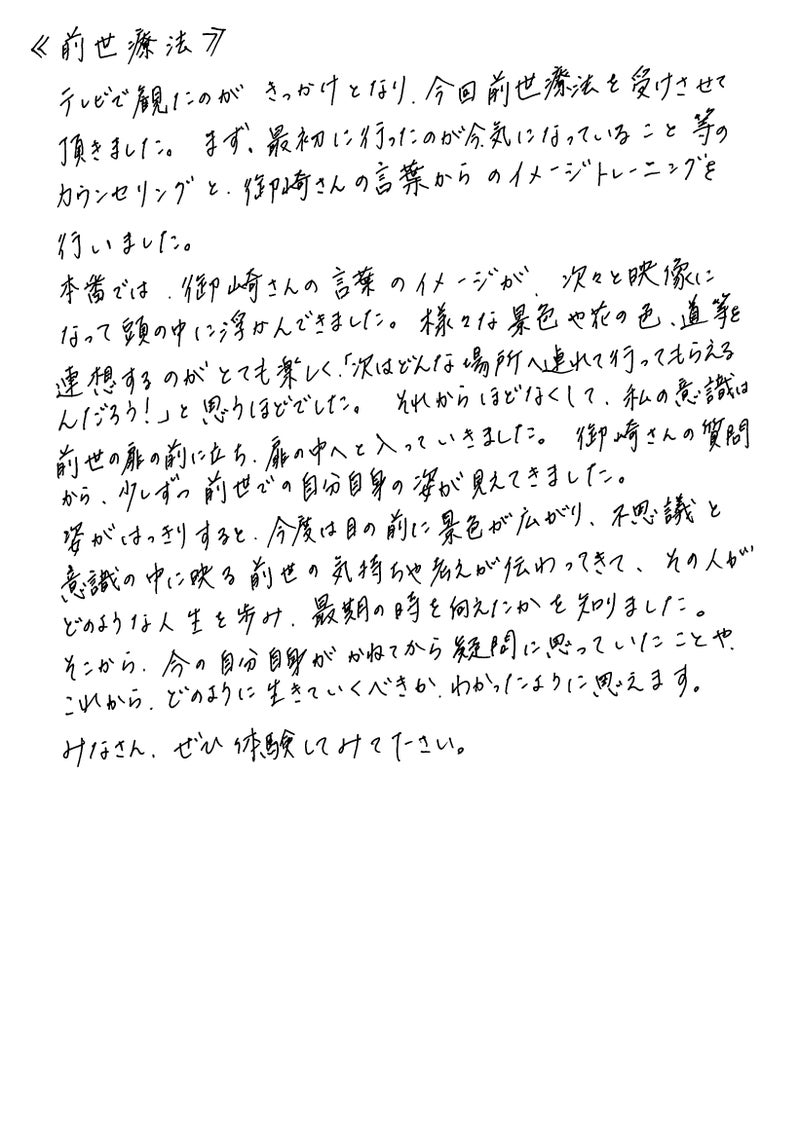 ≪前世療法≫
テレビで観たのが きっかけとなり、今回前世療法を受けさせて
頂きました。 まず、最初に行ったのが今気になっていること等の
カウンセリングと、御崎さんの言葉からのイメージトレーニングを
行いました。
本番では、御崎さんの言葉のイメージが、次々と映像に
なって頭の中に浮かんできました。様々な景色や花の色、道等を
連想するのがとても楽しく、「次はどんな場所へ連れて行ってもらえる
んだろう!」と思うほどでした。 それからほどなくして、私の意識は
前世の扉の前に立ち、扉の中へと入っていきました。 御崎さんの質問
から、少しずつ前世での自分自身の姿が見えてきました。
姿がはっきりすると、今度は目の前に景色が広がり、不思議と
意識の中に映る前世の気持ちや考えが伝わってきて、その人が
どのような人生を歩み、最期の時を何えたかを知りました。
そこから、今の自分自身がかねてから疑問に思っていたことや、
これから、どのように生きていくべきか、わかったように思えます。
みなさん、ぜひ体験してみて下さい。